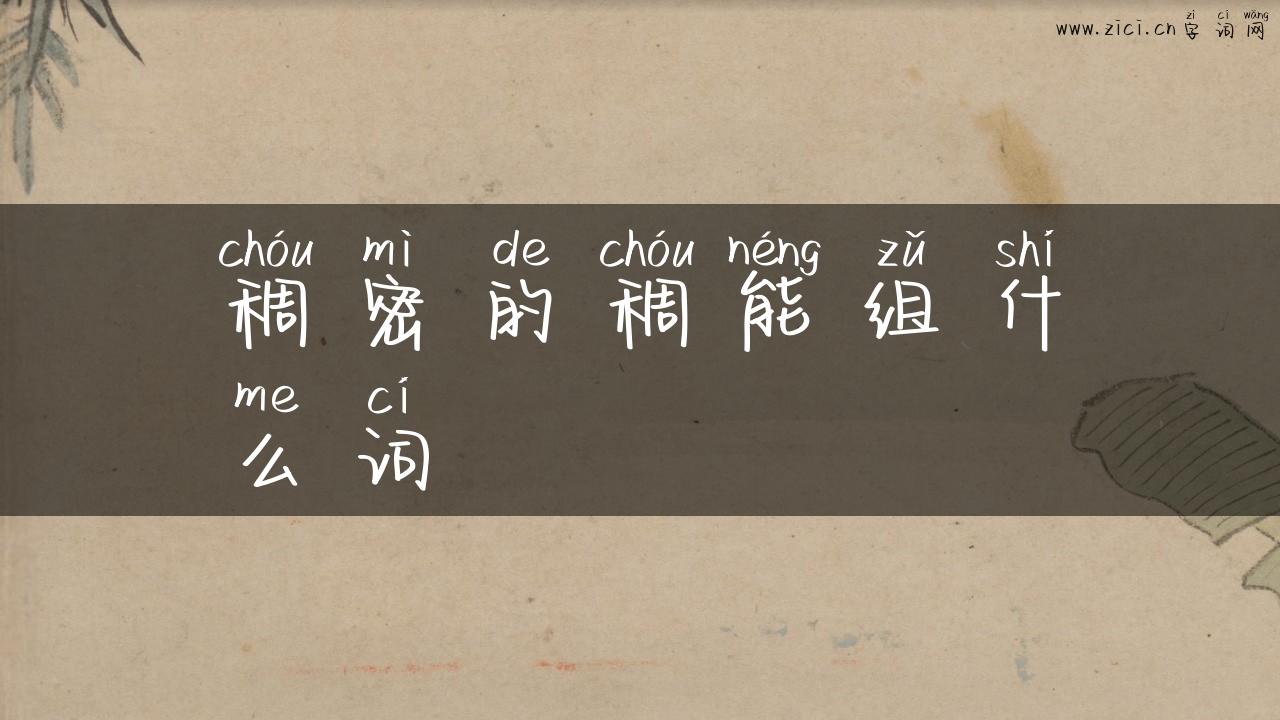 zì cí wǎng
www.zici.cn 字词网
chóu mì de chóu néng zǔ shí
稠密的稠能组什
me cí
么词